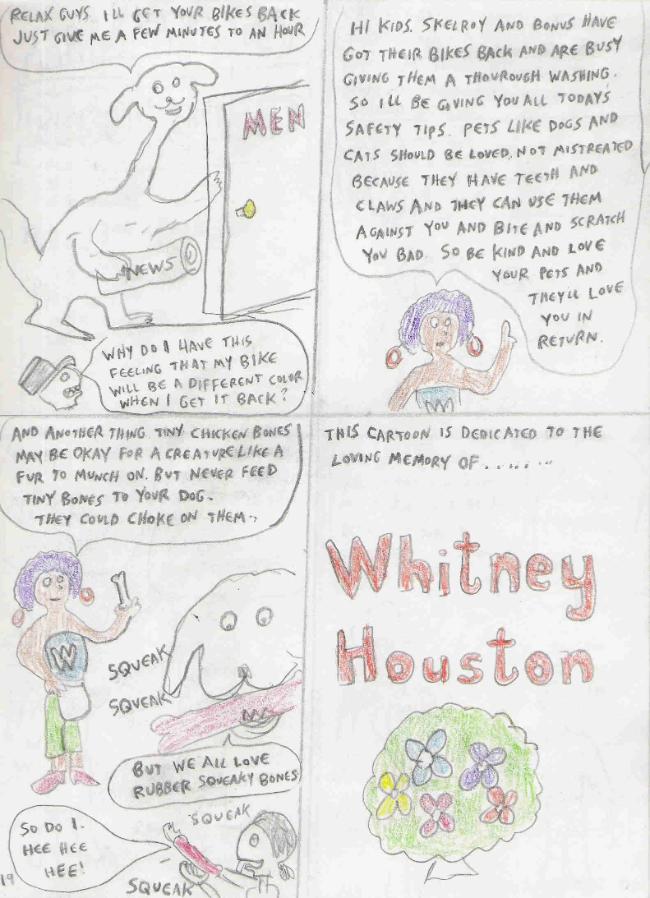 RELAX GUYS. I'LL GET YOUR BIKES BACK
JUST GIVE ME A FEW MINUTES TO AN HOUR
MEN
NEWS
WHY DO I HAVE THIS
FEELING THAT MY BIKE
WILL BE A DIFFERENT COLOR
WHEN I GET IT BACK?
HI KIDS. SKELROY AND BONUS HAVE
GOT THEIR BIKES BACK AND ARE BUSY
GIVING THEM A THOUROUGH WASHING.
SO I'LL BE GIVING YOU ALL TODAY'S
SAFETY TIPS. PETS LIKE DOGS AND
CATS SHOULD BE LOVED, NOT MISTREATED
BECAUSE THEY HAVE TEETH AND
CLAWS AND THEY CAN USE THEM
AGAINST YOU AND BITE AND SCRATCH
YOU BAD. SO BE KIND AND LOVE
YOUR PETS AND
THEY'LL LOVE
YOU IN
RETURN.
W
AND ANOTHER THING. TINY CHICKEN BONES
MAY BE OKAY FOR A CREATURE LIKE A
FUR TO MUNCH ON. BUT NEVER FEED
TINY BONES TO YOUR DOG.
THEY COULD CHOKE ON THEM..
W
SQUEAK
SQUEAK
BUT WE ALL LOVE
RUBBER SQUEAKY BONES
SQUEAK
SO DO I.
HEE HEE
HEE!
SQUEAK
19
THIS CARTOON IS DEDICATED TO THE
LOVING MEMORY OF........
Whitney
Houston